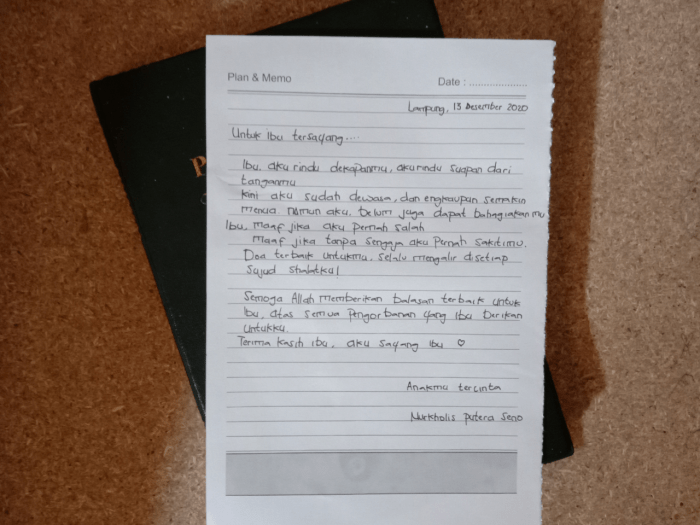 Plan & Memo
Date : ....................
Lampung, 13 Desember 2020
Untuk Ibu tersayang....
Ibu, aku rindu dekapanmu, aku rindu suapan dari
tanganmu
Kini aku sudah dewasa, dan engkaupun semakin
menua, namun aku, belum juga dapat bahagiakanmu
Ibu, maaf jika aku pernah salah
maaf jika tanpa sengaja aku pernah sakitimu.
Doa terbaik untukmu, selalu mengalir disetiap
sujud shalatku!
Semoga Allah memberikan balasan terbaik untuk
Ibu, atas semua pengorbanan yang ibu berikan
Untukku.
Terima kasih ibu, aku sayang ibu ♡
Anakmu tercinta
Nurkholis Putera Seno